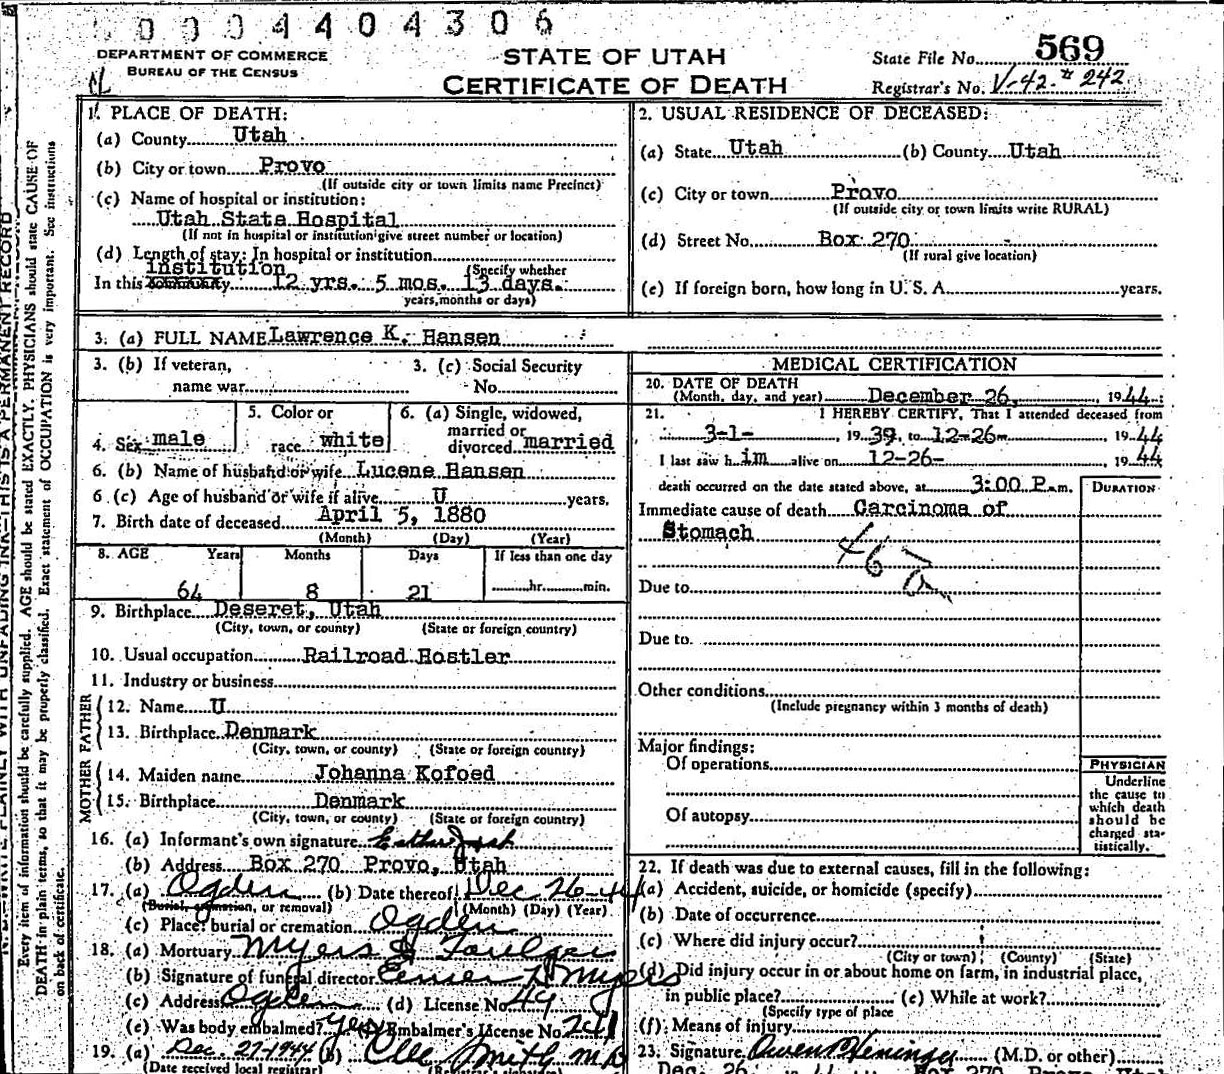 0004404306
DEPARTMENT OF COMMERCE
BUREAU OF THE CENSUS
STATE OF UTAH
CERTIFICATE OF DEATH
State File No. 569
Registrar's No. V-42.# 242
1. PLACE OF DEATH:
(a) County Utah
(b) City or town Provo
(If outside city or town limits name Precinct)
(c) Name of hospital or institution:
Utah State Hospital
(If not in hospital or institution give street number or location)
(d) Length of stay: In hospital or institution
(Specify whether
In this community institution 12 yrs. 5 mos. 13 days.
years, months or days)
2. USUAL RESIDENCE OF DECEASED:
(a) State Utah (b) County Utah
(c) City or town Provo
(If outside city or town limits write RURAL)
(d) Street No. Box 270
(If rural give location)
(e) If foreign born, how long in U. S. A. years.
3. (a) FULL NAME Lawrence K. Hansen
3. (b) If veteran,
name war
3. (c) Social Security
No.
4. Sex male
5. Color or
race white
6. (a) Single, widowed,
married or
divorced married
6. (b) Name of husband or wife Lucene Hansen
6. (c) Age of husband or wife if alive U years.
7. Birth date of deceased April 5, 1880
(Month) (Day) (Year)
8. AGE Years Months Days If less than one day
64 8 21 hr. min.
9. Birthplace Deseret, Utah
(City, town, or county) (State or foreign country)
10. Usual occupation Railroad Hostler
11. Industry or business
FATHER
12. Name U
13. Birthplace Denmark
(City, town, or county) (State or foreign country)
MOTHER
14. Maiden name Johanna Kofoed
15. Birthplace Denmark
(City, town, or county) (State or foreign country)
16. (a) Informant's own signature Esther
(b) Address Box 270 Provo, Utah
17. (a) Ogden (b) Date thereof Dec 26-44
(Burial, cremation, or removal) (Month) (Day) (Year)
(c) Place: burial or cremation Ogden
18. (a) Mortuary Myers & Foulger
(b) Signature of funeral director Elmer D Myers
(c) Address Ogden (d) License No. 49
(e) Was body embalmed? Yes (f) Embalmer's License No. 241
19. (a) Dec. 27-1944 (b) Smith M.D
(Date received local registrar) (Registrar's signature)
MEDICAL CERTIFICATION
20. DATE OF DEATH
(Month, day, and year) December 26, 1944
21. I HEREBY CERTIFY, That I attended deceased from
3-1- , 1939, to 12-26- 1944
I last saw him alive on 12-26- , 1944
death occurred on the date stated above, at 3:00 P.m.
DURATION
Immediate cause of death Carcinoma of
Stomach
46
Due to
Due to
Other conditions
(Include pregnancy within 3 months of death)
Major findings:
Of operations
Of autopsy
PHYSICIAN
Underline
the cause to
which death
should be
charged sta-
tistically.
22. If death was due to external causes, fill in the following:
(a) Accident, suicide, or homicide (specify)
(b) Date of occurrence
(c) Where did injury occur?
(City or town) (County) (State)
(d) Did injury occur in or about home on farm, in industrial place,
in public place? (e) While at work?
(Specify type of place
(f) Means of injury
23. Signature Owen P Heninger (M.D. or other)
Dec. 26 Box 270 Provo, Utah
N. B.—WRITE PLAINLY WITH UNFADING INK—THIS IS A PERMANENT RECORD
Every item of information should be carefully supplied. AGE should be stated EXACTLY. PHYSICIANS should state CAUSE OF
DEATH in plain terms, so that it may be properly classified. Exact statement of OCCUPATION is very important. See instructions
on back of certificate.